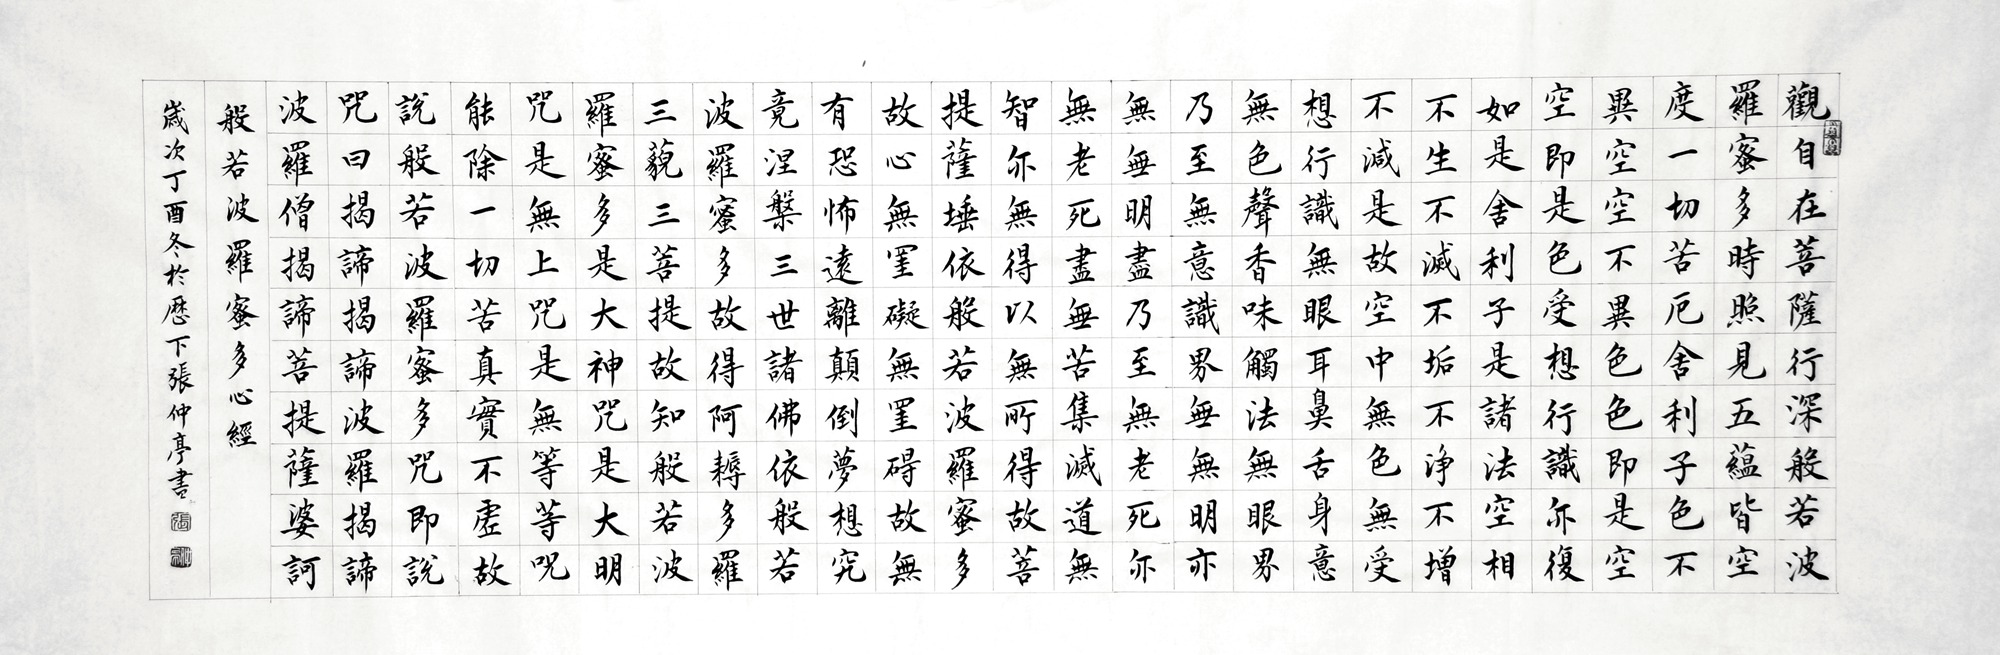 觀自在菩薩行深般若波
羅蜜多時照見五蘊皆空
度一切苦厄舍利子色不
異空空不異色色即是空
空即是色受想行識亦復
如是舍利子是諸法空相
不生不滅不垢不净不增
不減是故空中無色無受
想行識無眼耳鼻舌身意
無色聲香味觸法無眼界
乃至無意識界無無明亦
無無明盡乃至無老死亦
無老死盡無苦集滅道無
智亦無得以無所得故菩
提薩埵依般若波羅蜜多
故心無罣礙無罣碍故無
有恐怖遠離顛倒夢想究
竟涅槃三世諸佛依般若
波羅蜜多故得阿耨多羅
三藐三菩提故知般若波
羅蜜多是大神咒是大明
咒是無上咒是無等等咒
能除一切苦真實不虛故
說般若波羅蜜多咒即說
咒曰揭諦揭諦波羅揭諦
波羅僧揭諦菩提薩婆訶
般若波羅蜜多心經
歲次丁酉冬於歷下張仲亭書